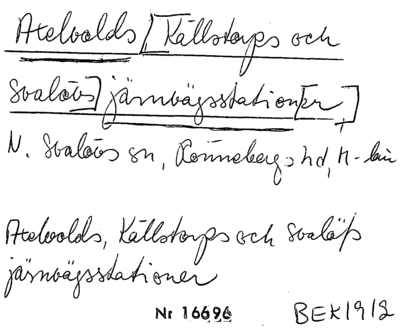 Atelvolds [Källstorps och
Svalövs] järnvägsstation[er]
N. Svalövs sn, Rönnebergs hd, M-län
Atelvolds, Källstorps och Svalöfs
järnvägsstationer
Nr 16696 BEK1912